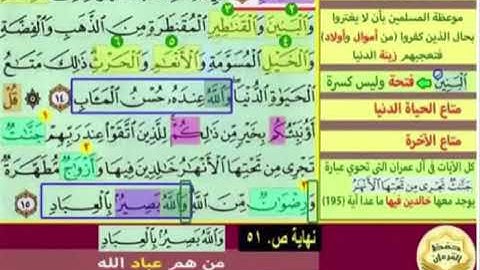 وَٱلْبَنِينَ وَٱلْقَنَٰطِيرِ ٱلْمُقَنطَرَةِ مِنَ ٱلذَّهَبِ وَٱلْفِضَّةِ
وَٱلْخَيْلِ ٱلْمُسَوَّمَةِ وَٱلْأَنْعَٰمِ وَٱلْحَرْثِ ذَٰلِكَ مَتَٰعُ
ٱلْحَيَوٰةِ ٱلدُّنْيَا وَٱللَّهُ عِندَهُۥ حُسْنُ ٱلْمَـَٔابِ ١٤ قُلْ
أَؤُنَبِّئُكُم بِخَيْرٍ مِّن ذَٰلِكُمْ لِلَّذِينَ ٱتَّقَوْا۟ عِندَ رَبِّهِمْ جَنَّٰتٌ
تَجْرِى مِن تَحْتِهَا ٱلْأَنْهَٰرُ خَٰلِدِينَ فِيهَا وَأَزْوَٰجٌ مُّطَهَّرَةٌ
وَرِضْوَٰنٌ مِّنَ ٱللَّهِ وَٱللَّهُ بَصِيرٌۢ بِٱلْعِبَادِ ١٥
موعظة المسلمين بأن لا يغتروا
بحال الذين كفروا (من أموال وأولاد)
فتعجبهم زينة الدنيا
ٱلْبَنِينَ فتحة وليس كسرة
متاع الحياة الدنيا
متاع الآخرة
كل الآيات في آل عمران التي تحوي عبارة
جَنَّٰتٌ تَجْرِى مِن تَحْتِهَا ٱلْأَنْهَٰرُ
يوجد معها خالدين فيها ما عدا آية (195)
وَٱللَّهُ بَصِيرٌۢ بِٱلْعِبَادِ
نهاية ص. ٥١
من هم عباد الله
حفظ
القرءان